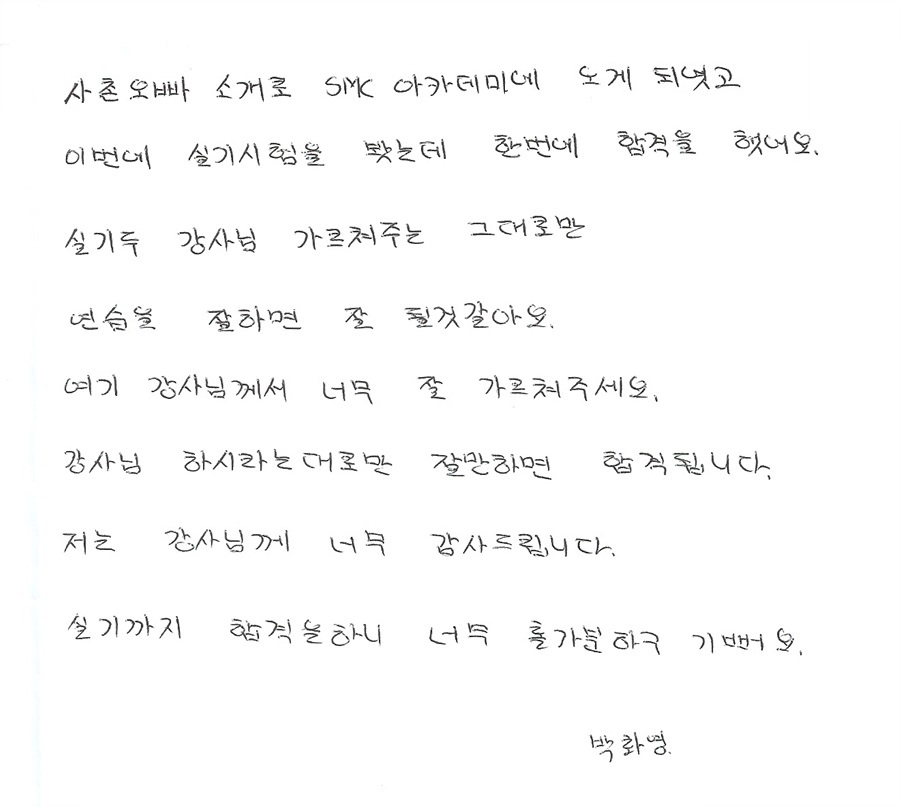 사촌오빠 소개로 SMK 아카데미에 오게 되엿고
이번에 실기시험을 봣는데 한번에 합격을 했어요.
실기두 강사님 가르쳐주는 그대로만
연습을 잘하면 잘 될것같아요.
여기 강사님께서 너무 잘 가르쳐주세요.
강사님 하시라는대로만 잘만하면 합격됩니다.
저는 강사님께 너무 감사드립니다.
실기까지 합격을하니 너무 홀가분하구 기뻐요.
박화영.